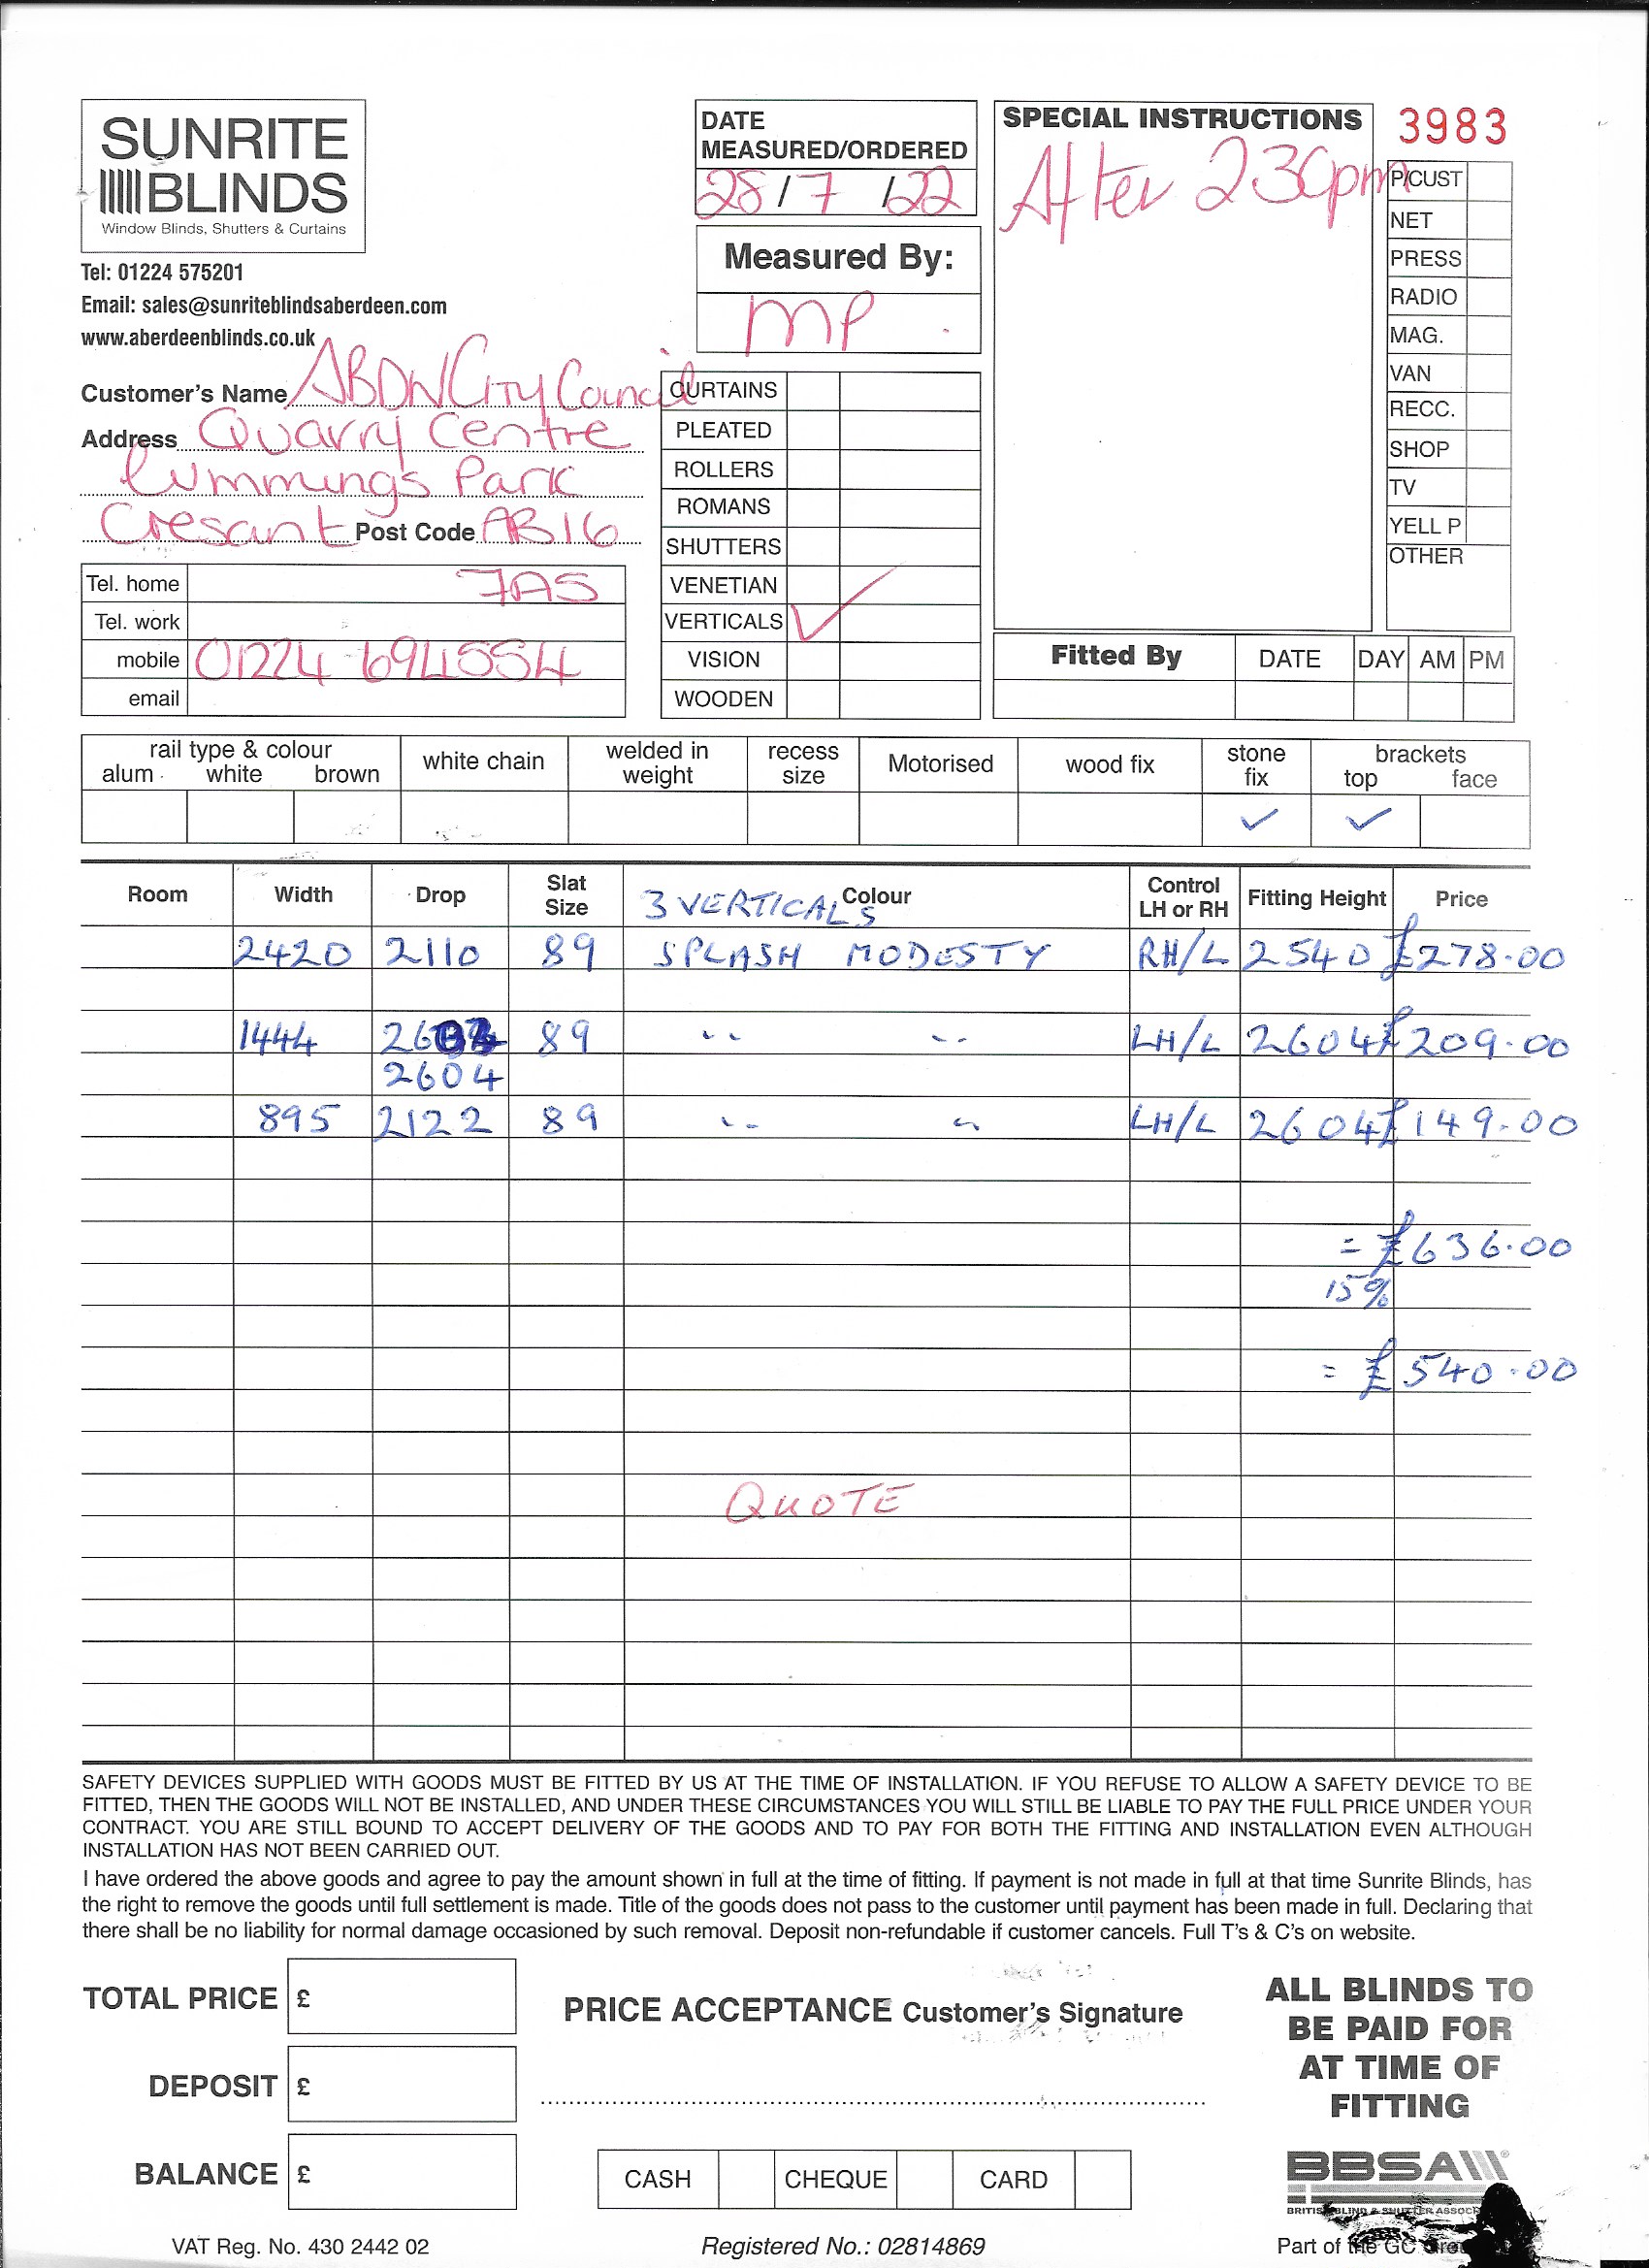 SUNRITE
BLINDS
Window Blinds, Shutters & Curtains
Tel: 01224 575201
Email: sales@sunriteblindsaberdeen.com
www.aberdeenblinds.co.uk
DATE
MEASURED/ORDERED
28/7/22
Measured By:
MP
SPECIAL INSTRUCTIONS
After 230pm
3983
P/CUST
NET
PRESS
RADIO
MAG.
VAN
RECC.
SHOP
TV
YELL P
OTHER
Customer's Name ABDN City Council
Address Quarry Centre
Cummings Park
Cresant Post Code AB16
Tel. home 7AS
Tel. work
mobile 01224 694554
email
CURTAINS
PLEATED
ROLLERS
ROMANS
SHUTTERS
VENETIAN
VERTICALS ✓
VISION
WOODEN
Fitted By DATE DAY AM PM
rail type & colour white chain welded in weight recess size Motorised wood fix stone fix brackets
alum white brown top face
✓ ✓
Room Width Drop Slat Size Colour Control LH or RH Fitting Height Price
3 VERTICALS
2420 2110 89 SPLASH MODESTY RH/L 2540 £278.00
1444 89 " " LH/L 2604 £209.00
2604
895 2122 89 " " LH/L 2604 £149.00
= £636.00
15%
= £540.00
QUOTE
SAFETY DEVICES SUPPLIED WITH GOODS MUST BE FITTED BY US AT THE TIME OF INSTALLATION. IF YOU REFUSE TO ALLOW A SAFETY DEVICE TO BE
FITTED, THEN THE GOODS WILL NOT BE INSTALLED, AND UNDER THESE CIRCUMSTANCES YOU WILL STILL BE LIABLE TO PAY THE FULL PRICE UNDER YOUR
CONTRACT. YOU ARE STILL BOUND TO ACCEPT DELIVERY OF THE GOODS AND TO PAY FOR BOTH THE FITTING AND INSTALLATION EVEN ALTHOUGH
INSTALLATION HAS NOT BEEN CARRIED OUT.
I have ordered the above goods and agree to pay the amount shown in full at the time of fitting. If payment is not made in full at that time Sunrite Blinds, has
the right to remove the goods until full settlement is made. Title of the goods does not pass to the customer until payment has been made in full. Declaring that
there shall be no liability for normal damage occasioned by such removal. Deposit non-refundable if customer cancels. Full T's & C's on website.
TOTAL PRICE £
DEPOSIT £
BALANCE £
PRICE ACCEPTANCE Customer's Signature
CASH CHEQUE CARD
ALL BLINDS TO
BE PAID FOR
AT TIME OF
FITTING
BBSA
BRITISH BLIND & SHUTTER ASSOC
VAT Reg. No. 430 2442 02
Registered No.: 02814869
Part of the GC